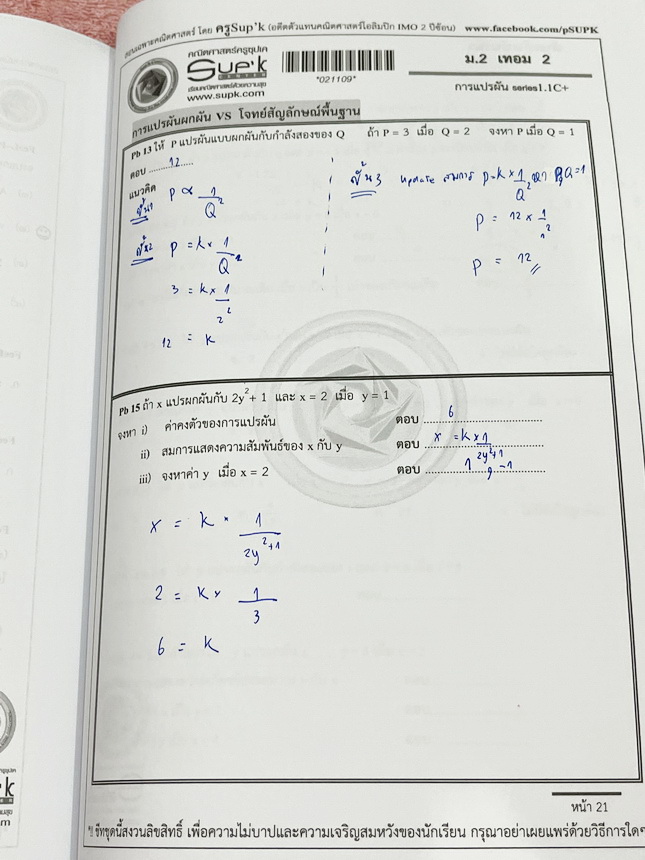 สอนเฉพาะคณิตศาสตร์ โดย ครูSup'k (อดีตตัวแทนคณิตศาสตร์โอลิมปิก IMO 2 ปีซ้อน) www.facebook.com/pSUPK
คณิตศาสตร์ครูซุปเค
Sup'k
CENTER
เรียนคณิตศาสตร์ด้วยความสุข
www.supk.com
*021109*
ม.2 เทอม 2
การแปรผัน series1.1C+
การแปรผันผกผัน VS โจทย์สัญลักษณ์พื้นฐาน
Pb 13 ให้ P แปรผันแบบผกผันกับกำลังสองของ Q ถ้า P = 3 เมื่อ Q = 2 จงหา P เมื่อ Q = 1
ตอบ ....12....
แนวคิด
ขั้น1 P ∝ 1/Q²
ขั้น2 P = k × 1/Q²
3 = k × 1/2²
12 = k
ขั้น3 update สมการ P = k × 1/Q² Q=1
P = 12 × 1/1²
P = 12
Pb 15 ถ้า x แปรผกผันกับ 2y²+ 1 และ x = 2 เมื่อ y = 1
จงหา i) ค่าคงตัวของการแปรผัน ตอบ 6
ii) สมการแสดงความสัมพันธ์ของ x กับ y ตอบ x = k × 1/2y²+1
iii) จงหาค่า y เมื่อ x = 2 ตอบ 1 , -1
x = k × 1/2y²+1
2 = k × 1/3
6 = k
หน้า 21
ชีทชุดนี้สงวนลิขสิทธิ์ เพื่อความไม่บาปและความเจริญสมหวังของนักเรียน กรุณาอย่าเผยแพร่ด้วยวิธีการใดๆ